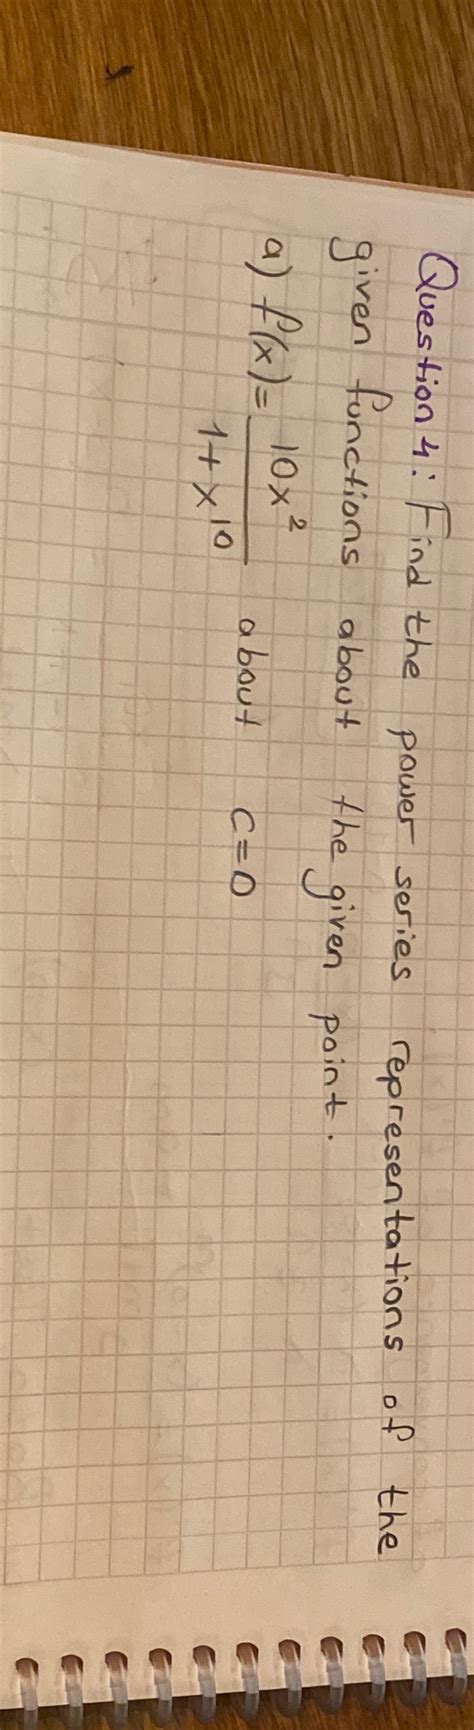 Question 4: Find the power series representations of the
given functions about the given point.
a) f(x) = 10x² / 1 + x¹⁰ about c=0